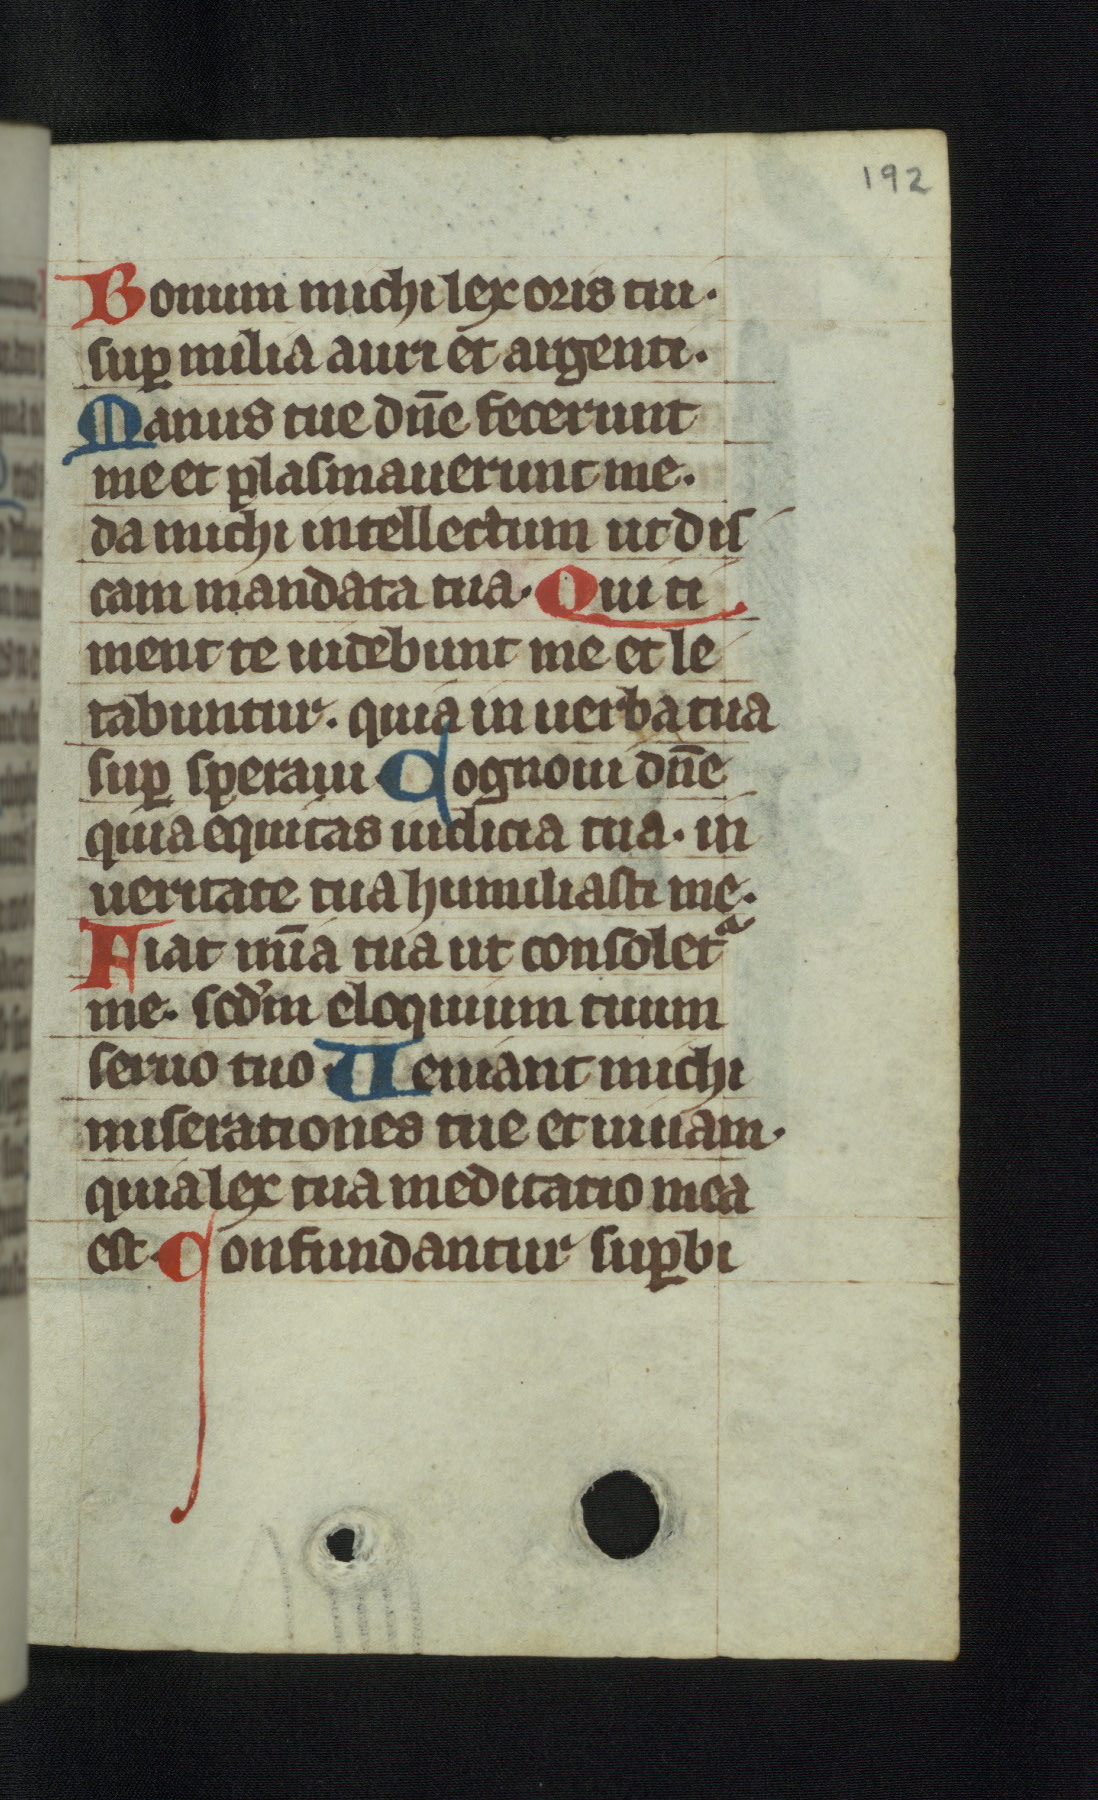 192
Bonum michi lex oris tui·
suꝑ milia auri et argenti.
Manus tue dn̄e fecerunt
me et plasmauerunt me.
da michi intellectum ut dis
cam mandata tua· Qui ti
ment te uidebunt me et le
tabuntur. quia in uerba tua
suꝑ speraui· Cognoui dn̄e
quia equitas iudicia tua· in
ueritate tua humiliasti me.
Fiat mīa tua ut consoletᵃ
me. scdm̄ eloquium tuum
seruo tuo· Ueniant michi
miserationes tue et uiuam·
quia lex tua meditatio mea
est· Confundantur suꝑbi